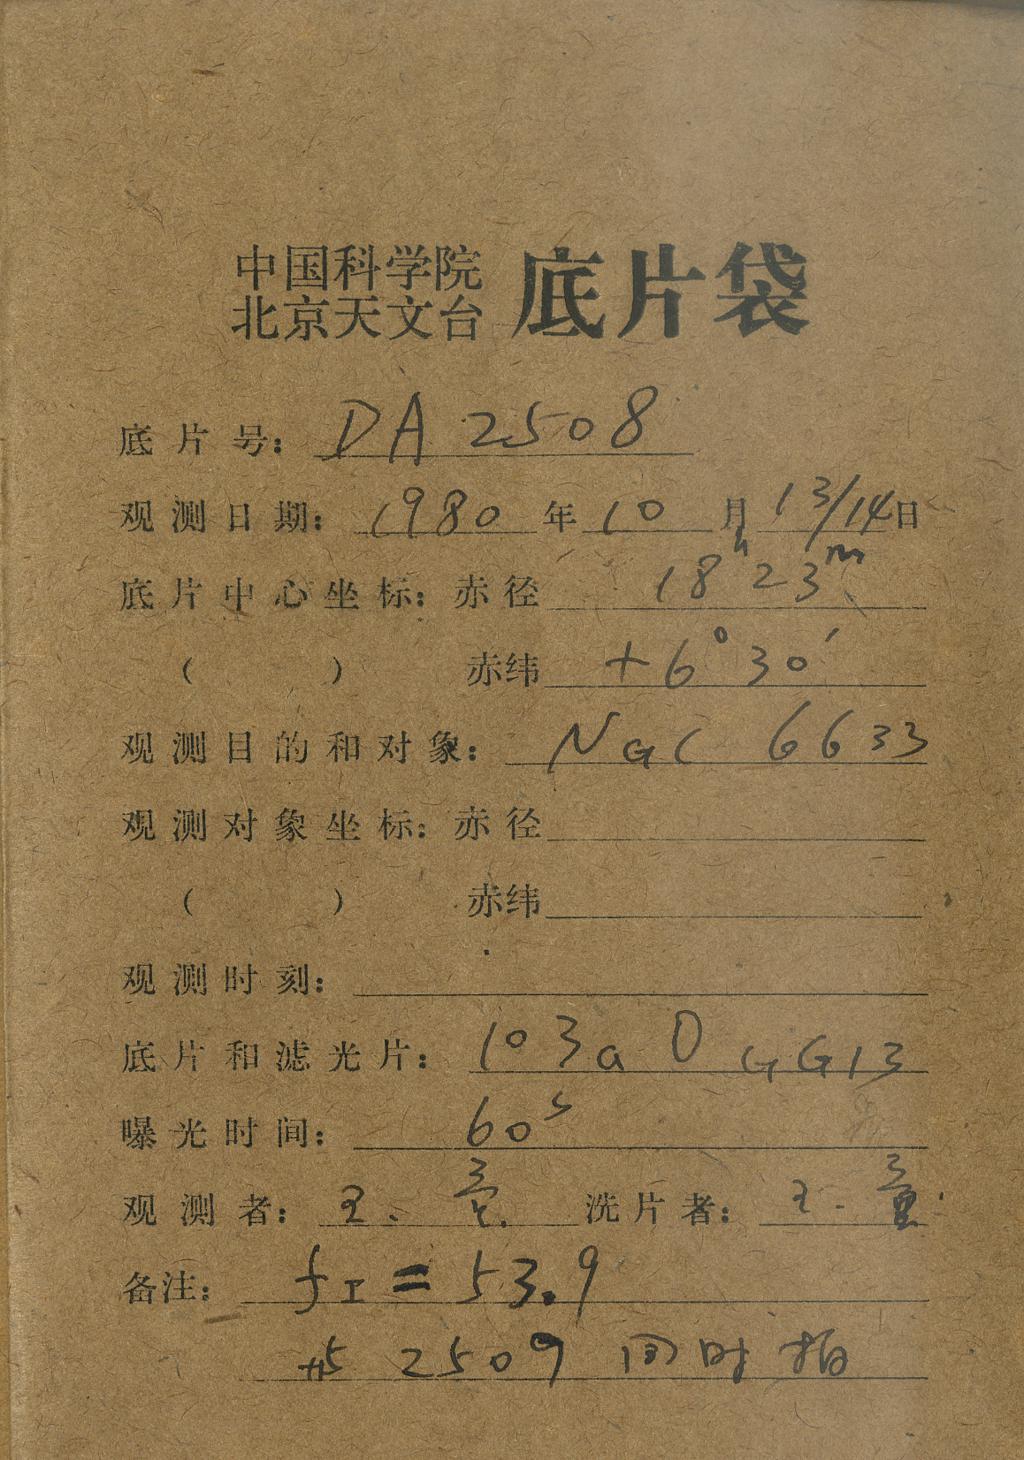 中国科学院
北京天文台 底片袋
底片号: DA 2508
观测日期: 1980 年 10 月 13/14 日
底片中心坐标: 赤径 18h 23m
( ) 赤纬 +6° 30′
观测目的和对象: NGC 6633
观测对象坐标: 赤径
( ) 赤纬
观测时刻:
底片和滤光片: 103a O GG13
曝光时间: 60s
观测者: 王. 洗片者: 王.
备注: fI = 53.9
与 2509 同时拍